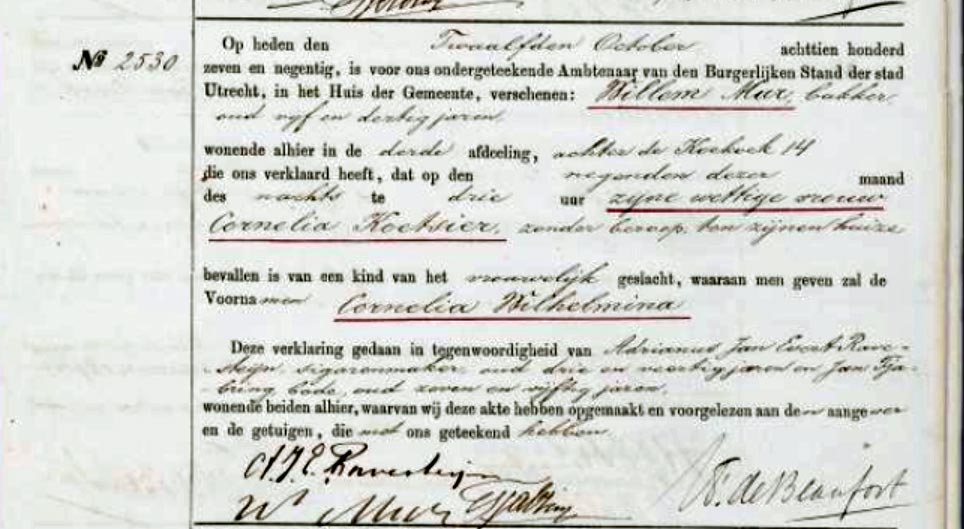 № 2530
Op heden den Twaalfden October achttien honderd
zeven en negentig, is voor ons ondergeteekende Ambtenaar van den Burgerlijken Stand der stad
Utrecht, in het Huis der Gemeente, verschenen: Willem Mur, bakker,
oud vijf en dertig jaren,
wonende alhier in de derde afdeeling, achter de Koekoek 14
die ons verklaard heeft, dat op den negenden dezer maand
des nachts te drie uur zijne wettige vrouw
Cornelia Koetsier, zonder beroep, ten zijnen huize
bevallen is van een kind van het vrouwelijk geslacht, waaraan men geven zal de
Voornamen Cornelia Wilhelmina
Deze verklaring gedaan in tegenwoordigheid van Adrianus Jan Evert Rave-
steijn, sigarenmaker, oud drie en veertig jaren en Jan Tja-
bring, bode, oud zeven en vijftig jaren,
wonende beiden alhier, waarvan wij deze akte hebben opgemaakt en voorgelezen aan den aangever
en de getuigen, die met ons geteekend hebben.
A.J.E. Ravesteijn
W Mur
de Beaufort